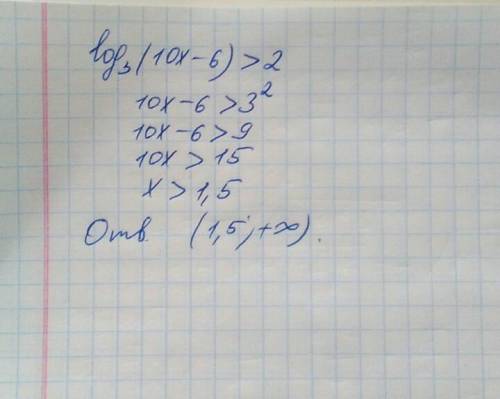 log₃(10x-6)>2
10x-6>3²
10x-6>9
10x>15
x>1,5
Отв (1,5;+∞).